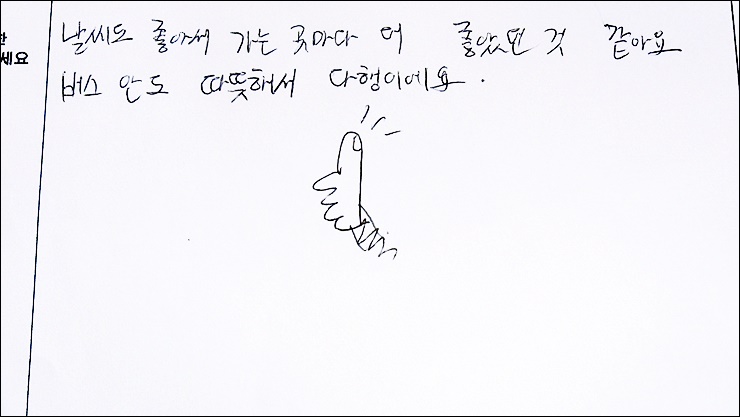 날씨도 좋아서 가는 곳마다 더 좋았던 것 같아요
버스 안도 따뜻해서 다행이에요.
세요